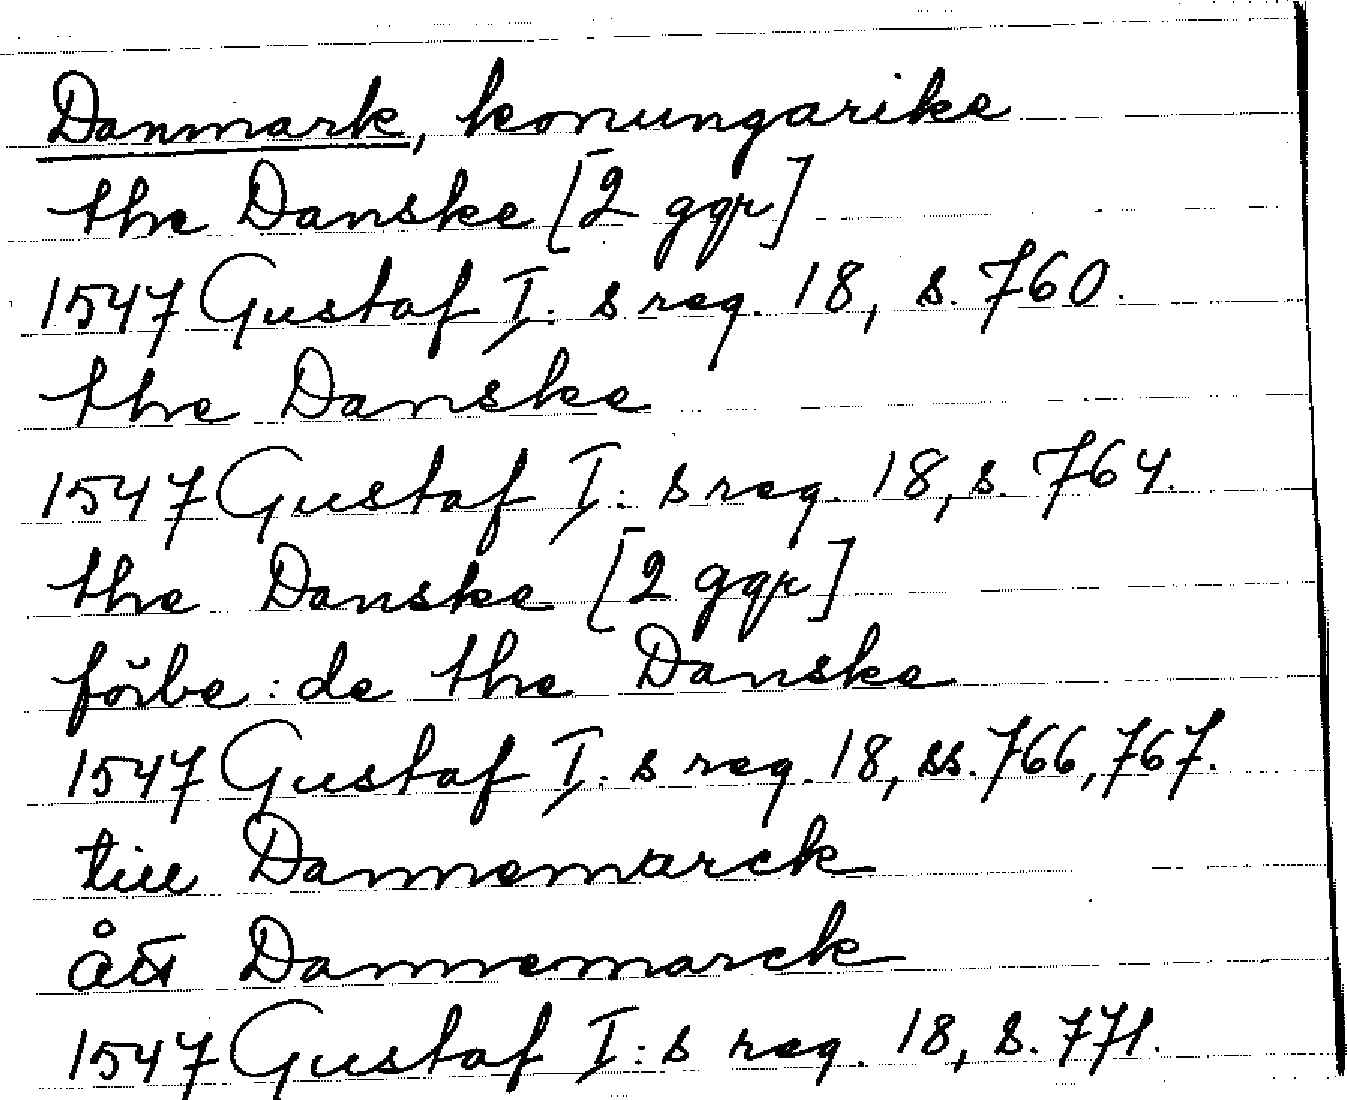 Danmark, konungarike
the Danske [2 ggr]
1547 Gustaf I: s reg. 18, s. 760.
the Danske
1547 Gustaf I: s reg. 18, s. 764.
the Danske [2 ggr]
förbe: de the Danske
1547 Gustaf I: s reg. 18, ss. 766, 767.
till Dannemarck
ått Dannemarck
1547 Gustaf I: s reg. 18, s. 771.